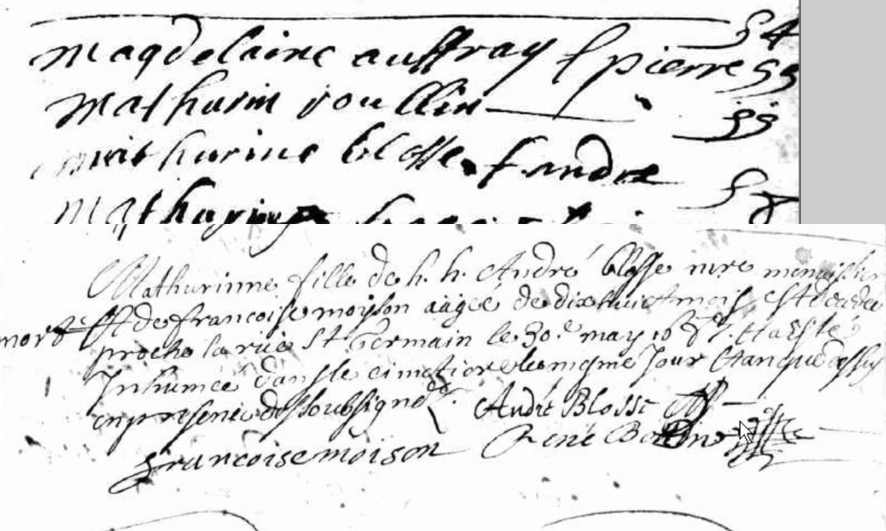 54
magdelaine auffray f pierre 55
mathurin joullin 55
mathurine blosse f andre
5
mathurin
Mathurinne fille de h. h. André blosse mre menuisier
Et de francoise moison aagée de dix huict mois est decedee
mort proche la rue St Germain le 30e may 16 Et a Esté
Inhumée dans le cimetiere le mesme Jour Et an que dessus
en presence des soubsignés André Blosse
René
francoise moison